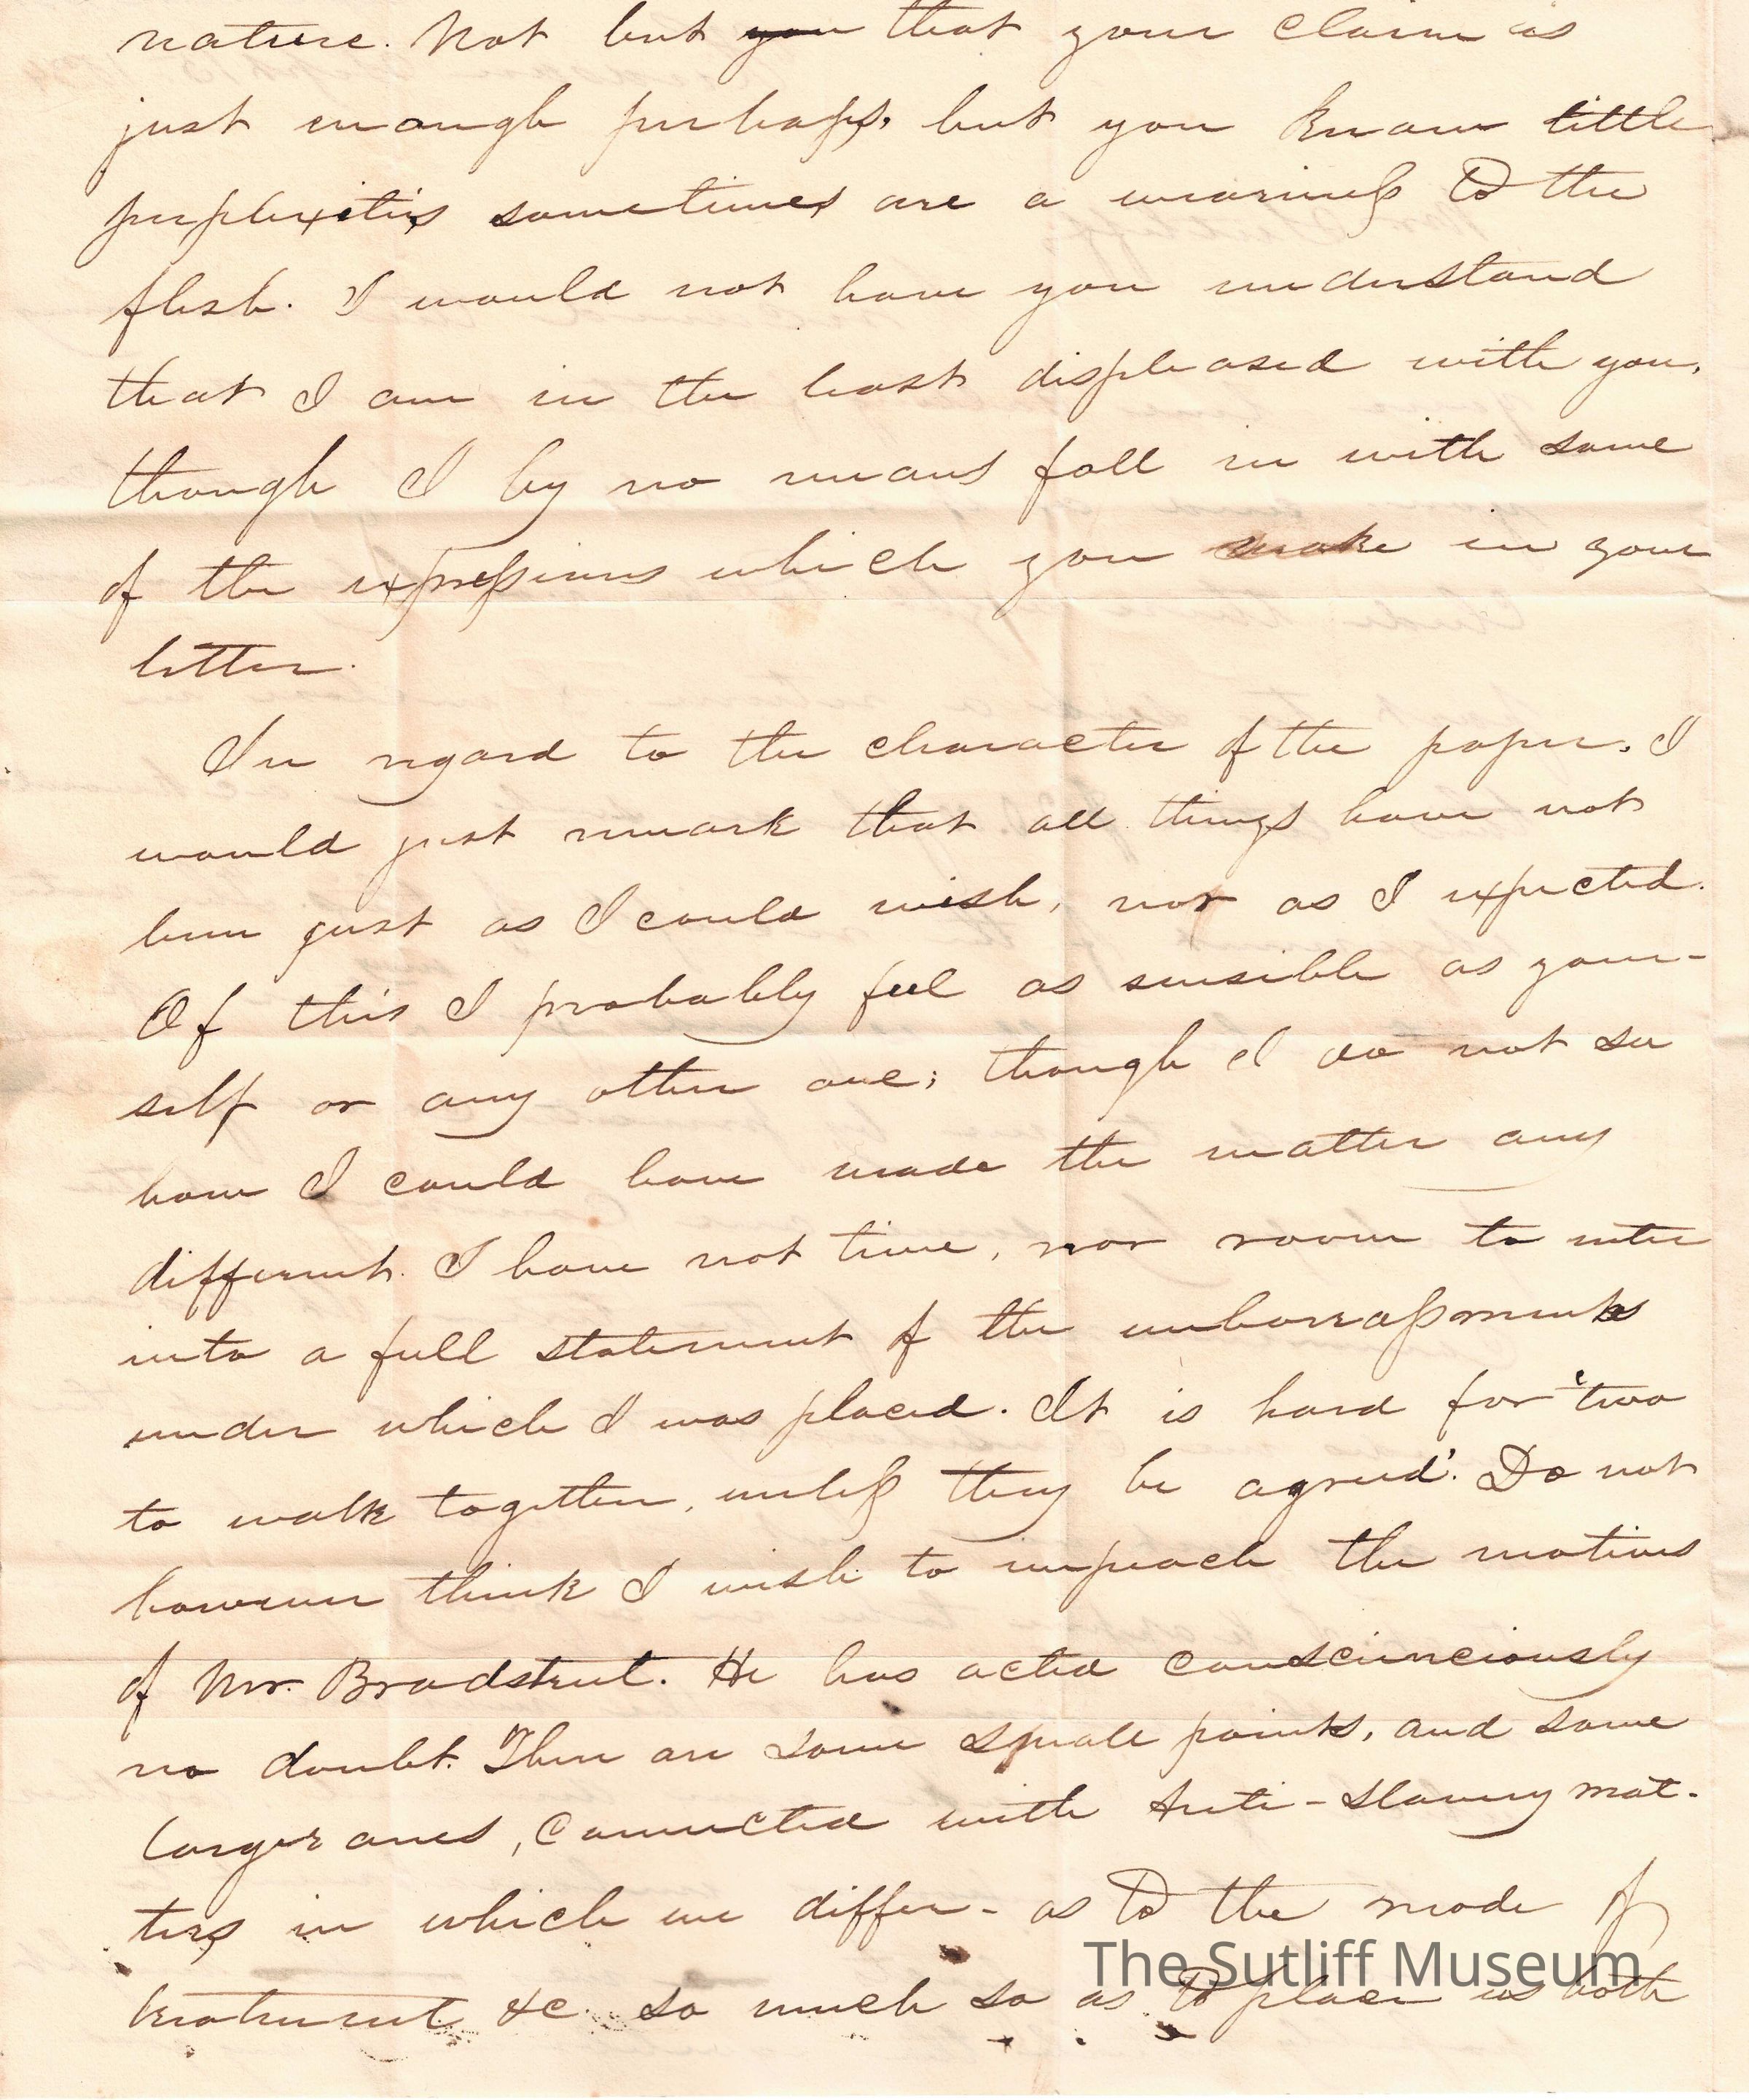 nature. Not but you that your claim is
just enough perhaps, but you know little
perplexities sometimes are a weariness to the
flesh. I would not have you understand
that I am in the least displeased with you,
though I by no means fall in with some
of the expressions which you make in your
letter.
In regard to the character of the paper, I
would just remark that all things have not
been just as I could wish, nor as I expected.
Of this I probably feel as sensible as your-
self or any other one; though I do not see
how I could have made the matter any
different. I have not time, nor room to enter
into a full statement of the embarrassments
under which I was placed. It is hard for 'two
to walk together, unless they be agreed'. Do not
however think I wish to impeach the motives
of Mr. Bradstreet. He has acted conscienciously
no doubt. There are some small points, and some
larger ones, connected with Anti-Slavery mat-
ters in which we differ - as to the mode of
treatment &c. so much so as to place us both
The Sutliff Museum